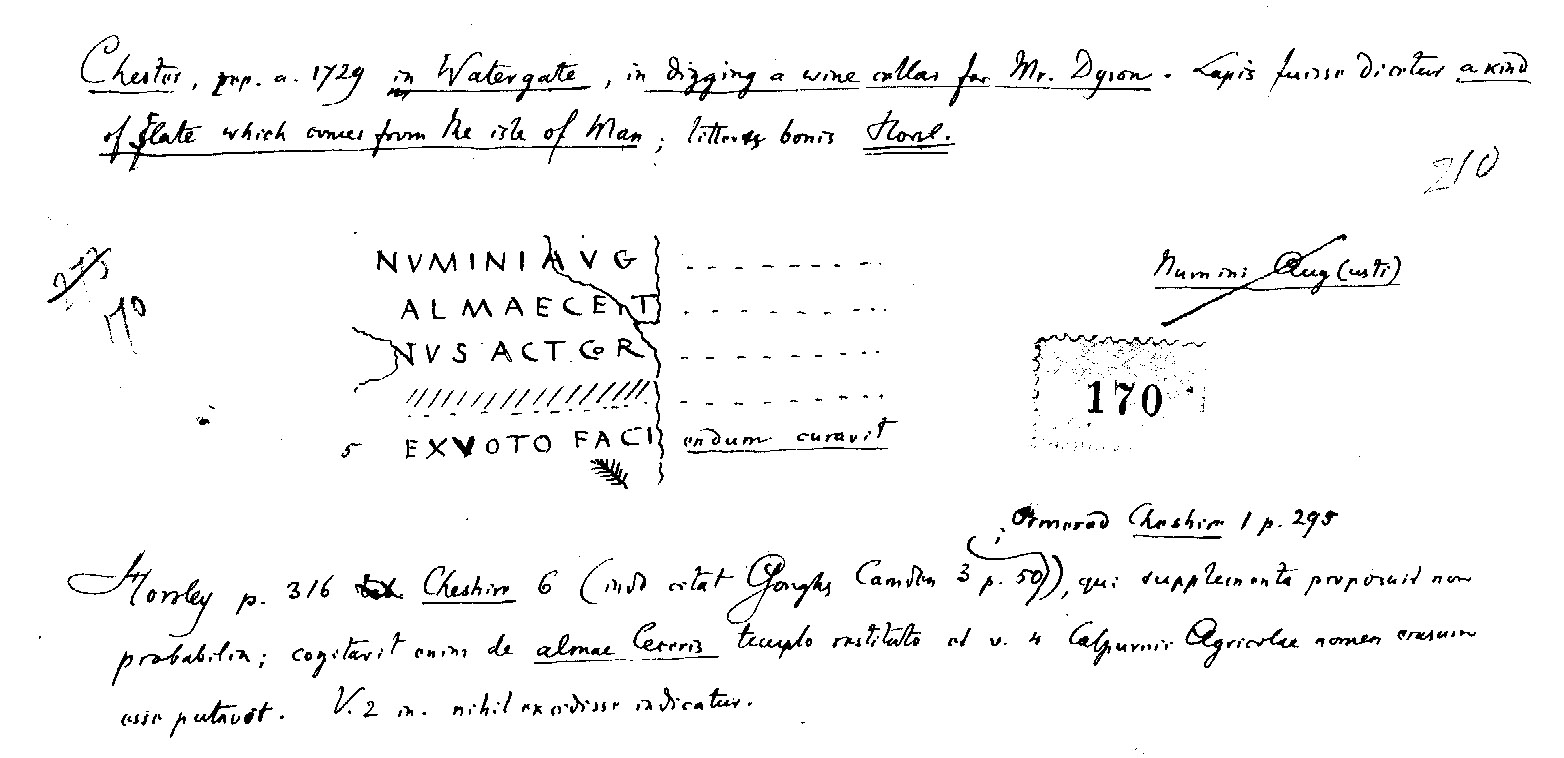 Chester, rep. a. 1729 in Watergate, in digging a wine cellar for Mr. Dyson. Lapis fuisse dicitur a kind
of slate which comes from the isle of Man; litteris bonis Horsl.
210
NVMINI AVG - - - - - - -
Numini Aug(usti)
273
170
ALMAE CE T - - - - - - -
NVS ACT COR - - - - - - -
170
/////////////// - - - - - - -
5 EX VOTO FACI endum curavit
; Ormerod Cheshire 1 p. 295
Horsley p. 316 Cheshire 6 (inde citat Goughs Camden 3 p. 50), qui supplementa proposuit non
probabilia; cogitavit enim de almae Cereris templo restituto et v. 4 Calpurnii Agricolae nomen erasum
esse putavit. V. 2 in. nihil excidisse indicatur.